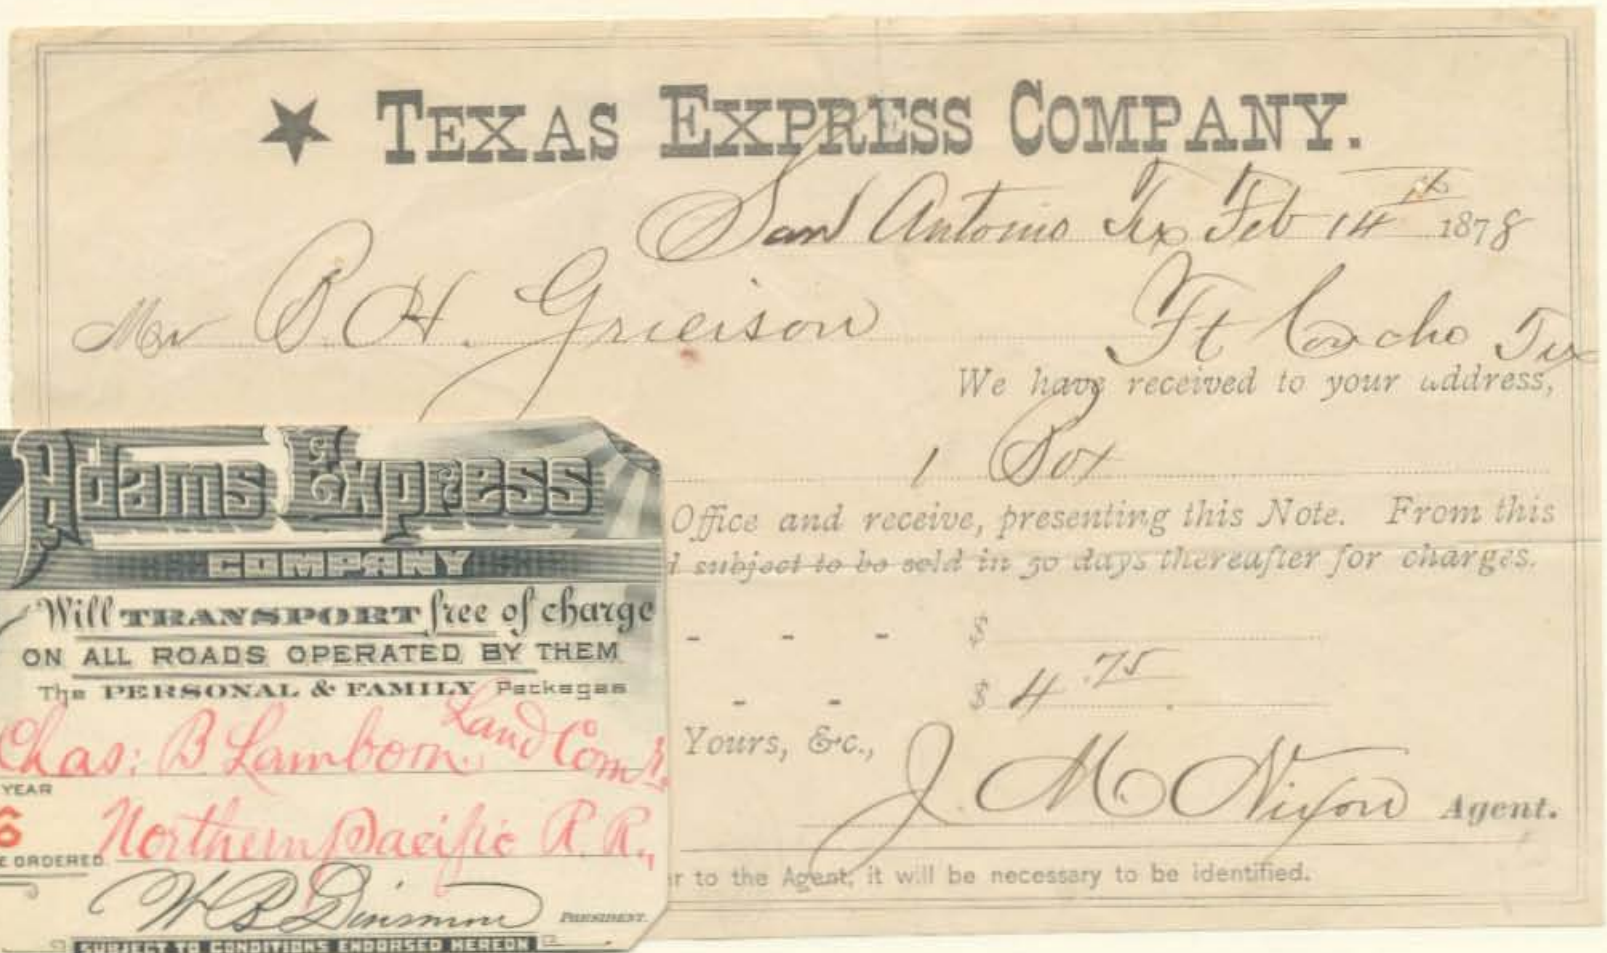 ★ TEXAS EXPRESS COMPANY.
San Antonio Tex Feb 14th 1878
Mr B. H. Grieison Ft Concho Tex
We have received to your address,
1 Box
Office and receive, presenting this Note. From this
subject to be sold in 30 days thereafter for charges.
- - - $
- - $ 4.75
Yours, &c.,
J. M. Nixon Agent.
r to the Agent, it will be necessary to be identified.
Adams Express
COMPANY
Will TRANSPORT free of charge
ON ALL ROADS OPERATED BY THEM
The PERSONAL & FAMILY Packages
Chas: B Lamborn Land Comr.
YEAR
6 Northern Pacific R. R.,
E ORDERED
W B Dinsmore PRESIDENT.
SUBJECT TO CONDITIONS ENDORSED HEREON